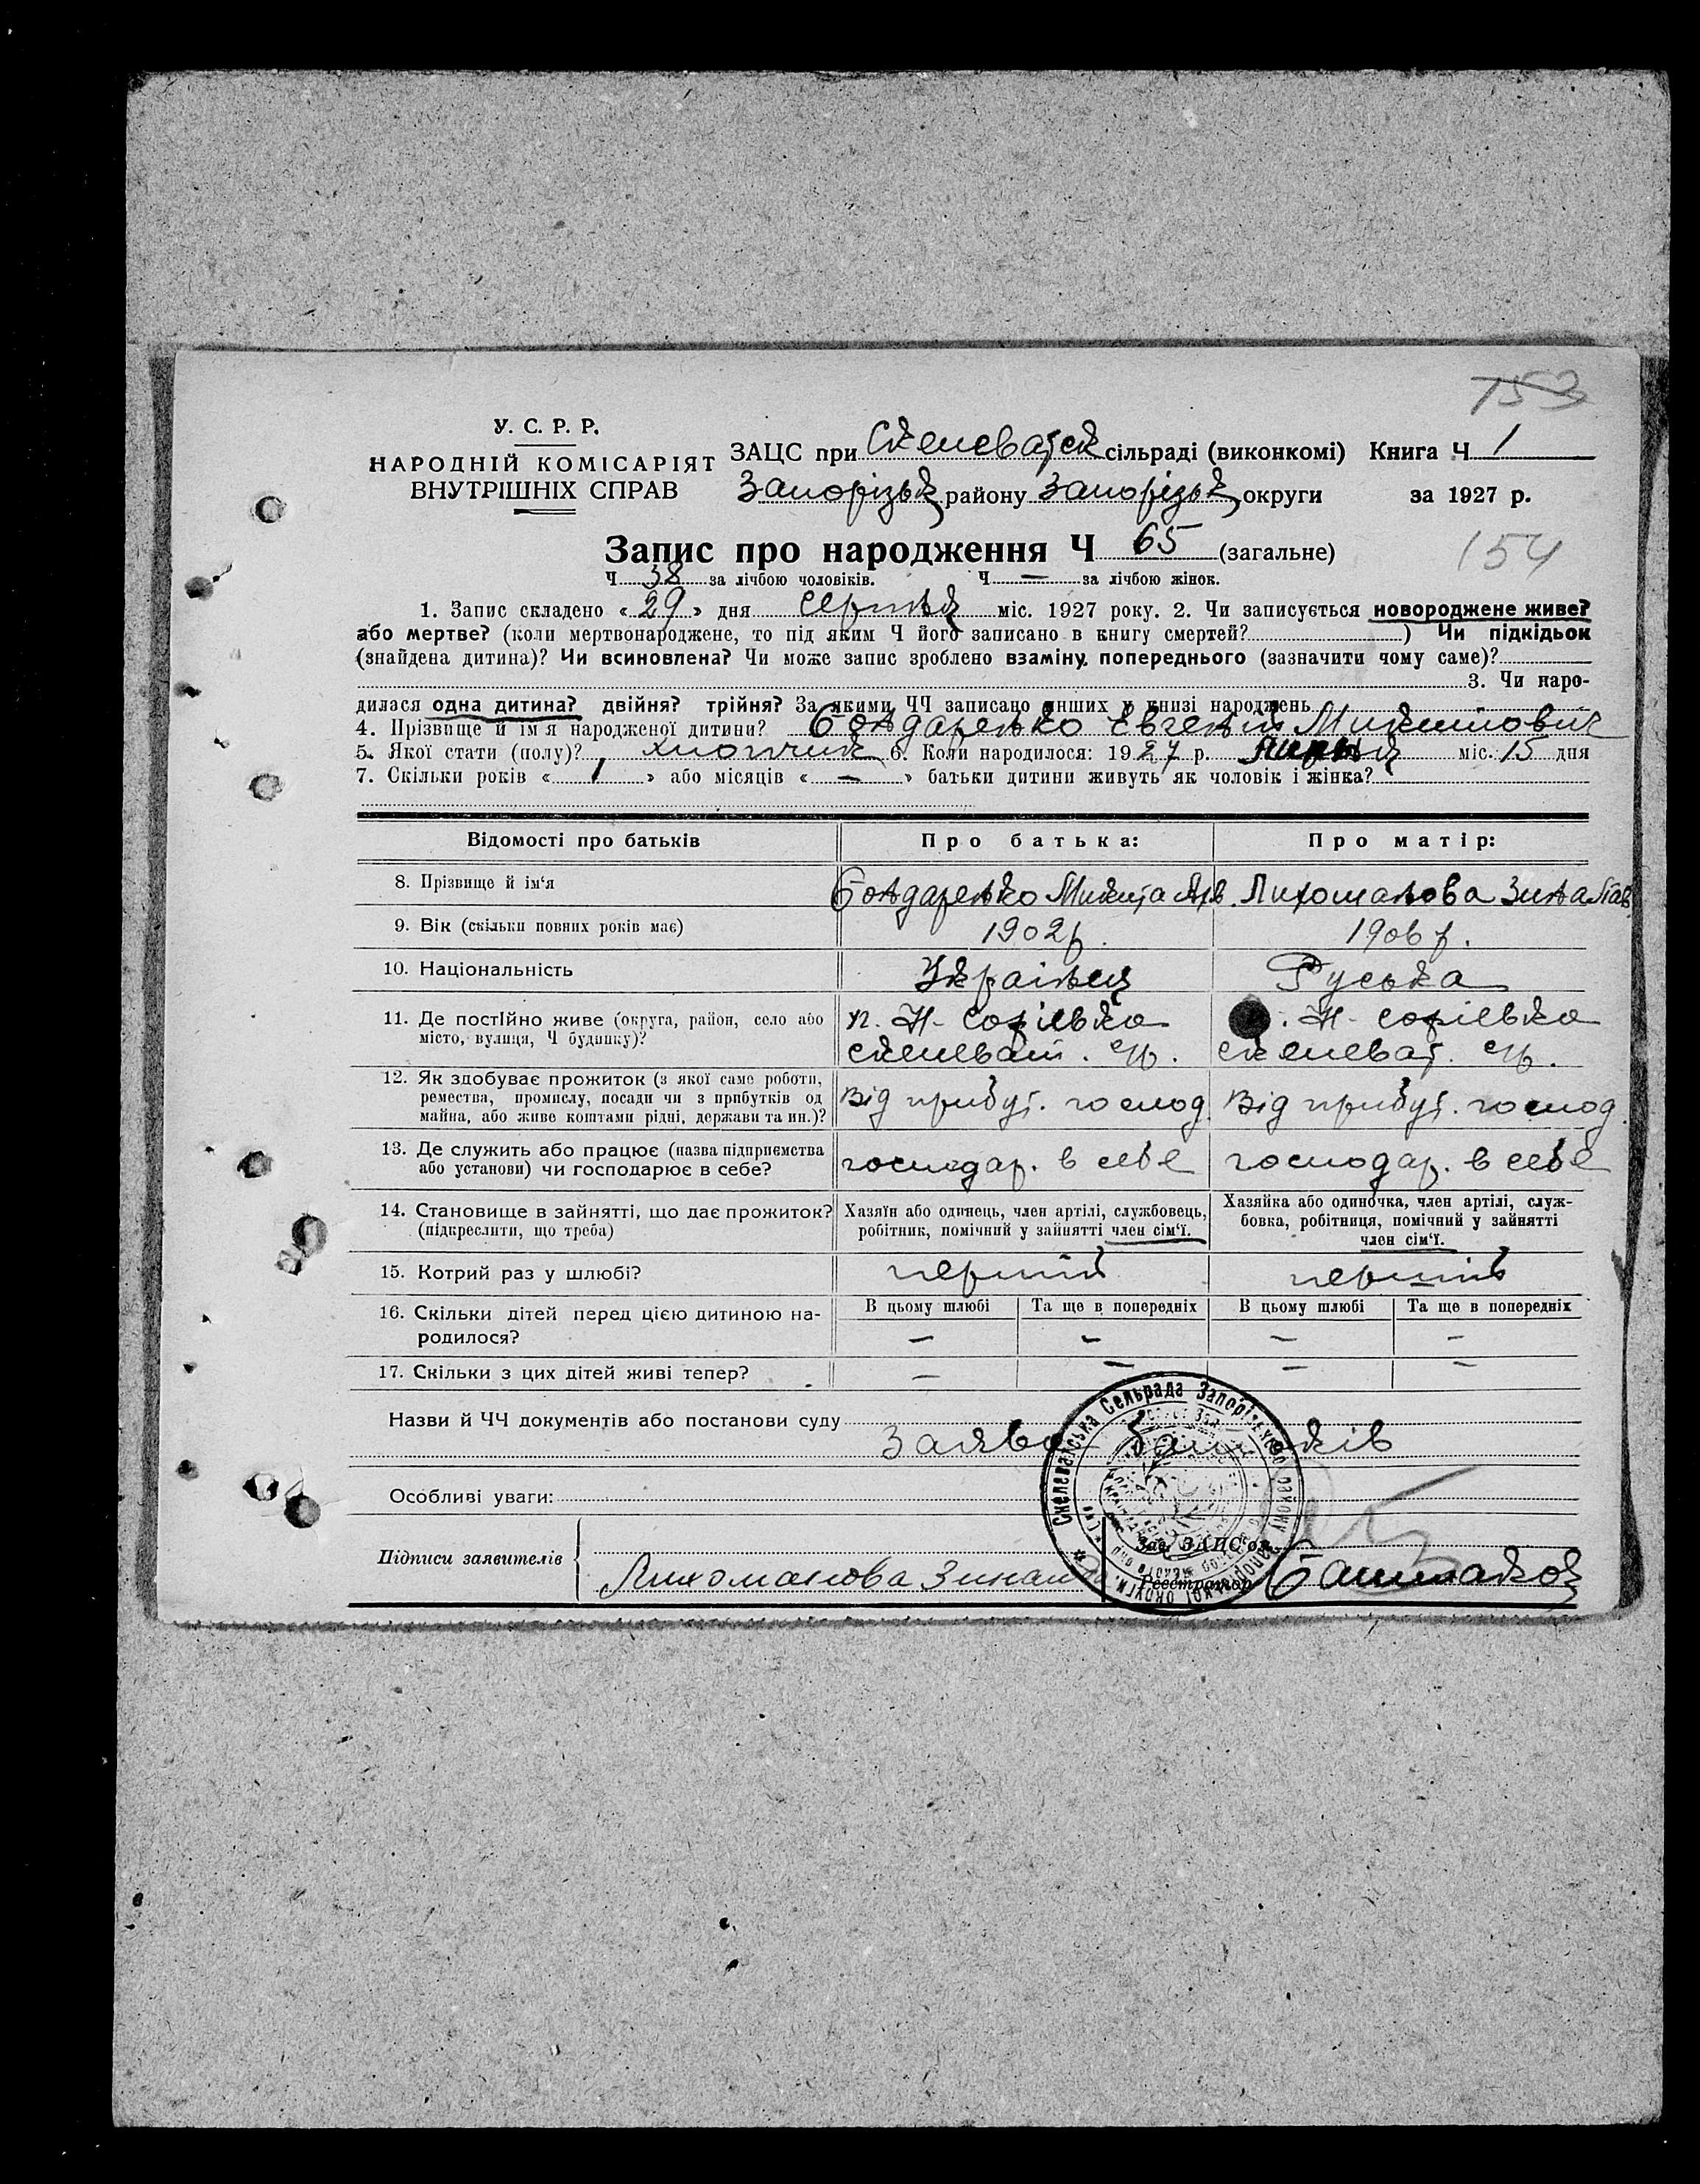 153
У. С. Р. Р.
НАРОДНІЙ КОМІСАРІЯТ
ВНУТРІШНІХ СПРАВ
ЗАЦС при Скелеватск сільраді (виконкомі) Книга Ч 1
Запорізьк району Запорізьк округи за 1927 р.
Запис про народження Ч 65 (загальне)
154
Ч 38 за лічбою чоловіків. Ч — за лічбою жінок.
1. Запис складено «29» дня серпня міс. 1927 року. 2. Чи записується новороджене живе?
або мертве? (коли мертвонароджене, то під яким Ч його записано в книгу смертей? ) Чи підкідьок
(знайдена дитина)? Чи всиновлена? Чи може запис зроблено взаміну попереднього (зазначити чому саме)?
3. Чи наро-
дилася одна дитина? двійня? трійня? За якими ЧЧ записано инших у книзі народжень
4. Прізвище й ім'я народженої дитини? Бондаренко Евгений Микитович
5. Якої стати (полу)? хлопчик 6. Коли народилося: 1927 р. міс. 15 дня
7. Скільки років «1» або місяців «—» батьки дитини живуть як чоловік і жінка?
Відомості про батьків Про батька: Про матір:
8. Прізвище й ім'я Бондаренко Микита Лихоманова Зина
9. Вік (скільки повних років має) 1902р. 1906 р.
10. Національність Українець Руська
11. Де постійно живе (округа, район, село або
місто, вулиця, Ч будинку)?
п. Н-Софіевка
скелеват. с/р.
. Н-Софіевка
скелеват. с/р.
12. Як здобуває прожиток (з якої саме роботи,
ремества, промислу, посади чи з прибутків од
майна, або живе коштами рідні, держави та ин.)?
Від прибут. господ. Від прибут. господ.
13. Де служить або працює (назва підприємства
або установи) чи господарює в себе?
господар. в себе господар. в себе
14. Становище в зайнятті, що дає прожиток?
(підкреслити, що треба)
Хазяїн або одинець, член артілі, службовець,
робітник, помічний у зайнятті член сім'ї.
Хазяйка або одиночка, член артілі, служ-
бовка, робітниця, помічний у зайнятті
член сім'ї.
15. Котрий раз у шлюбі? перший перший
16. Скільки дітей перед цією дитиною на-
родилося?
В цьому шлюбі Та ще в попередніх В цьому шлюбі Та ще в попередніх
— — — —
17. Скільки з цих дітей живі тепер? — — — —
Назви й ЧЧ документів або постанови суду
Заява батьків
Скелеватська Сельрада Запорізького району Запорізької округи
Особливі уваги:
Підписи заявителів
Зав. ЗАЦС'ом
Лихоманова Зинаида Реєстратор